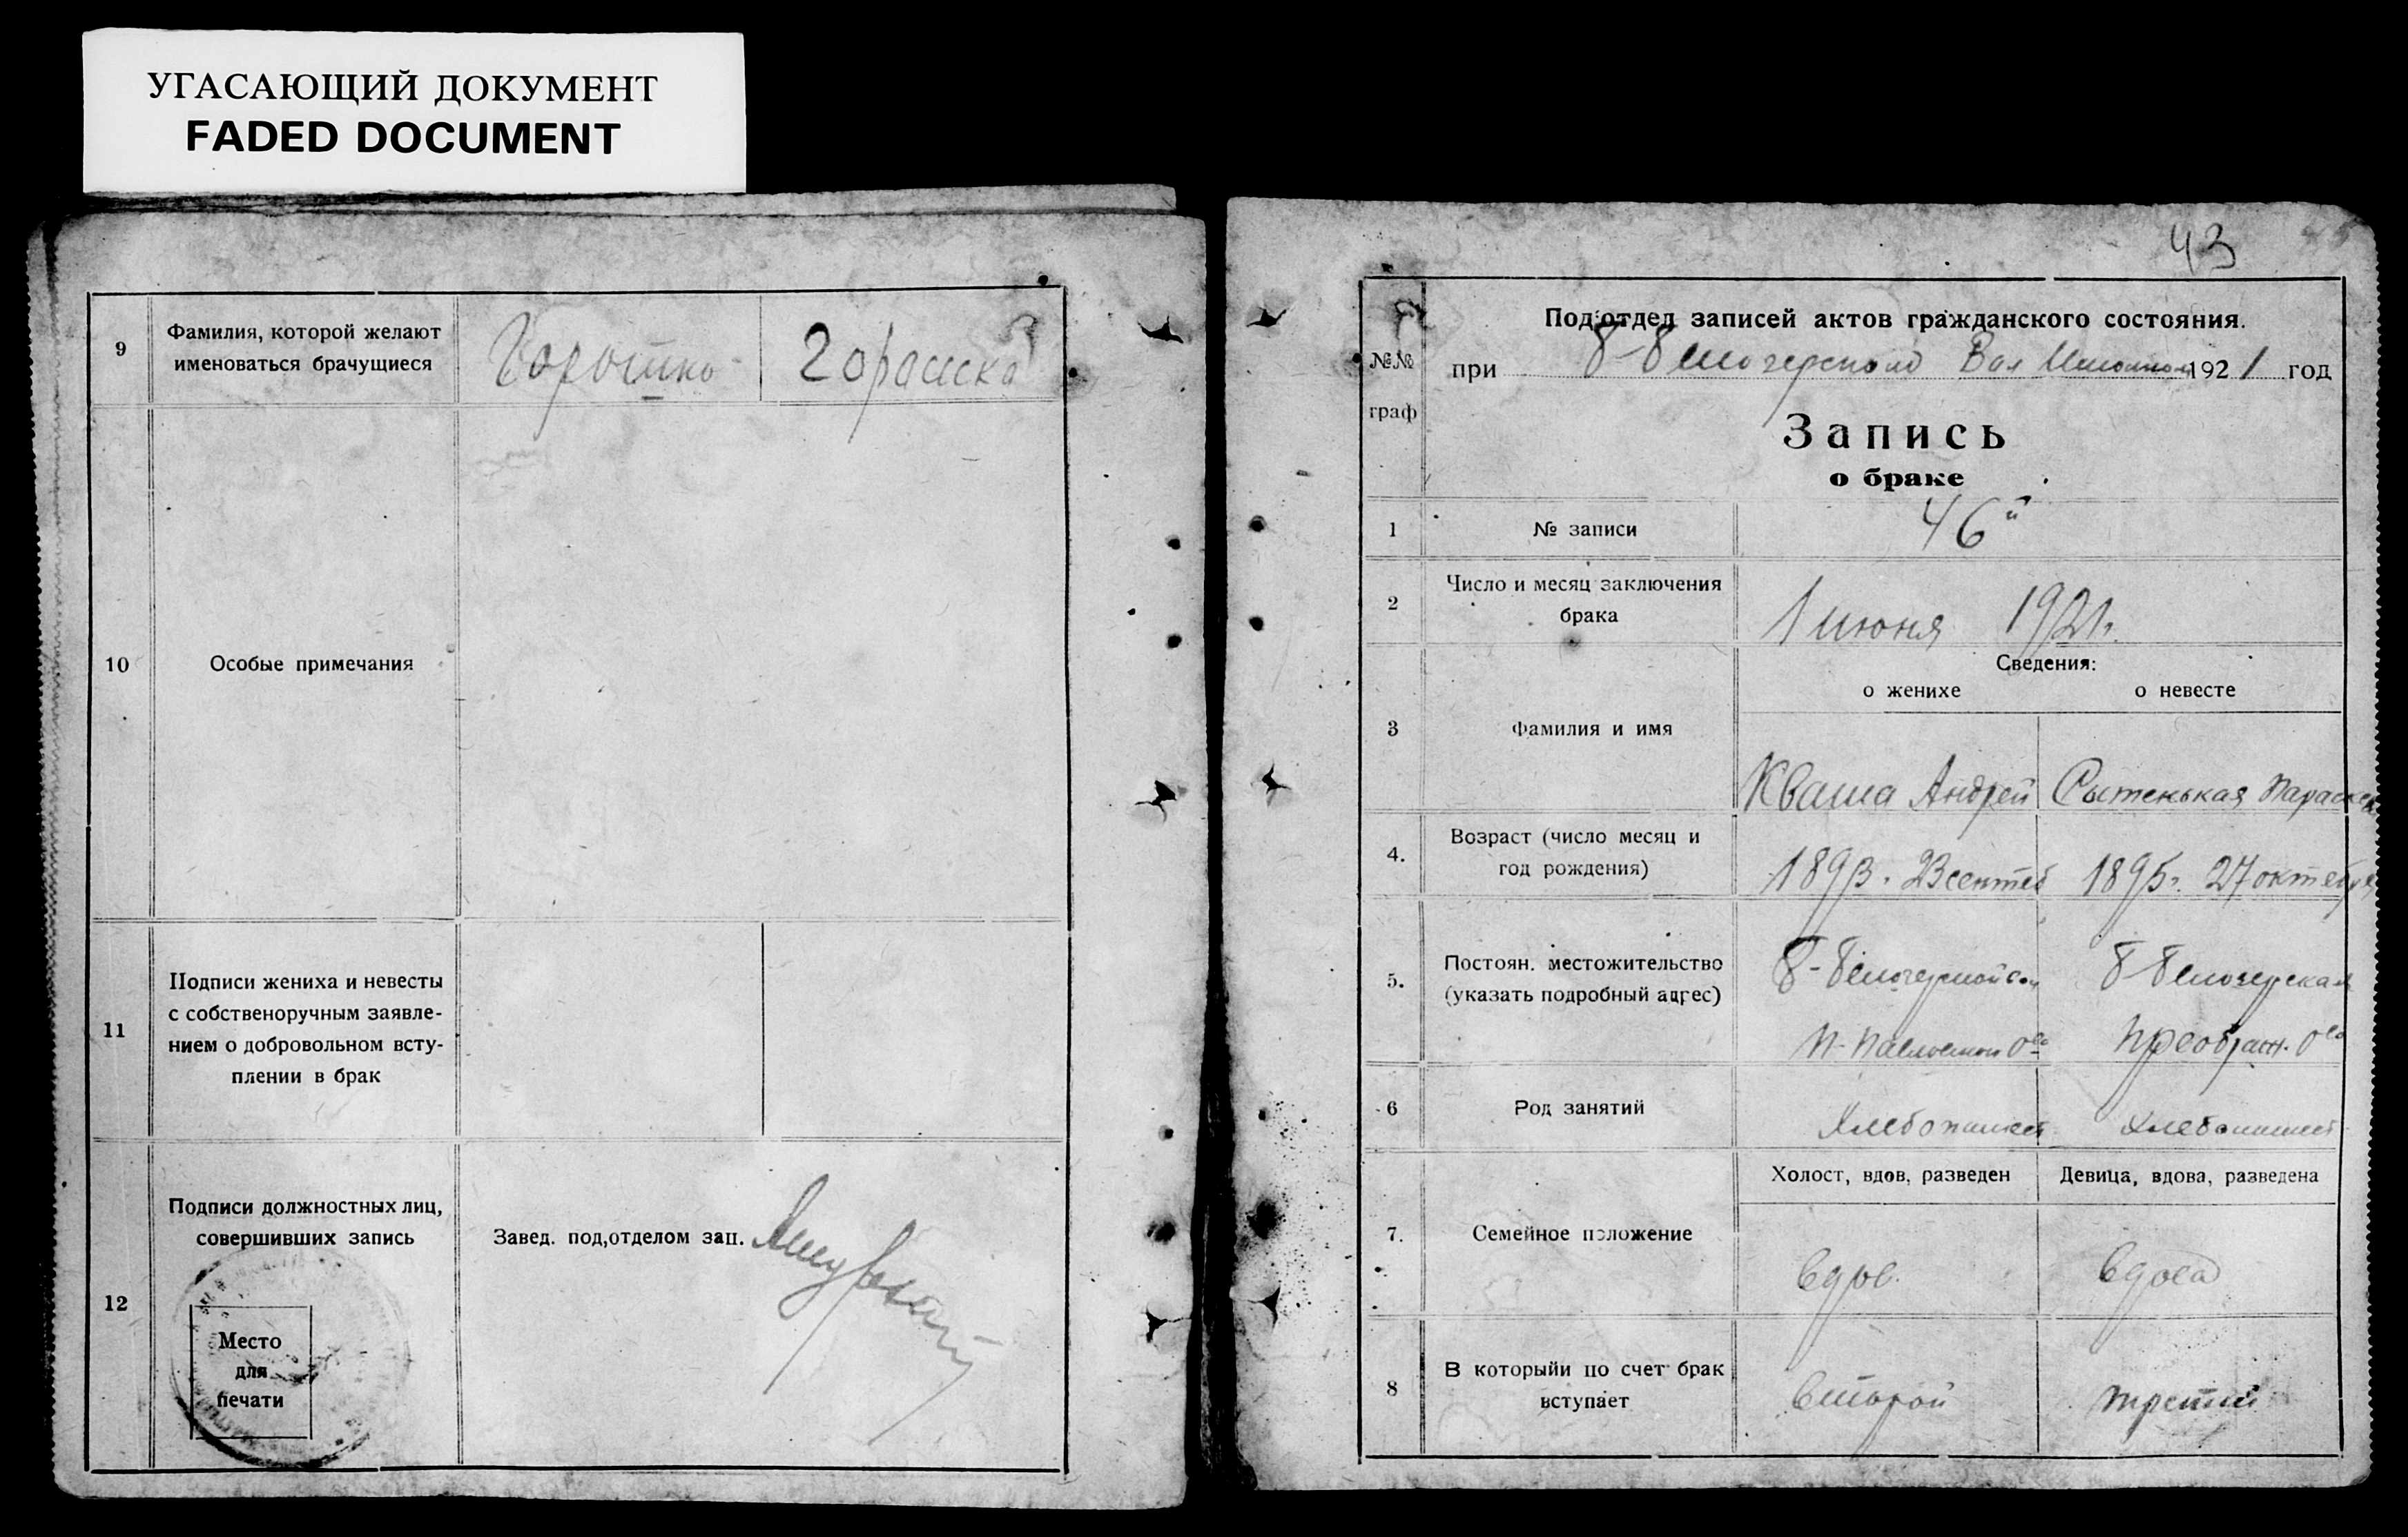 УГАСАЮЩИЙ ДОКУМЕНТ
FADED DOCUMENT
9
Фамилия, которой желают
именоваться брачущиеся
10
Особые примечания
11
Подписи жениха и невесты
с собственоручным заявле-
нием о добровольном всту-
плении в брак
12
Подписи должностных лиц,
совершивших запись
Место
для
печати
Завед. под,отделом зап.
43
№№
граф
Под'отдел записей актов гражданского состояния.
при Б-Белозерском Вол 1921 год
Запись
о браке
1
№ записи
46й
2
Число и месяц заключения
брака
1 июня 1921г.
Сведения:
о женихе
о невесте
3
Фамилия и имя
Кваша Андрей
Сытенькая Параскев
4.
Возраст (число месяц и
год рождения)
1893г. 23 сентеб
1895г. 27 октебря
5.
Постоян. местожительство
(указать подробный адрес)
Б-Белозерской
П-Павловском Ова
Б-Белозерская
Преображ. Ова
6
Род занятий
Хлебопашест
Хлебопашест
7.
Семейное положение
Холост, вдов, разведен
Девица, вдова, разведена
вдов.
вдова
8
В которыйи по счет брак
вступает
второй
третий